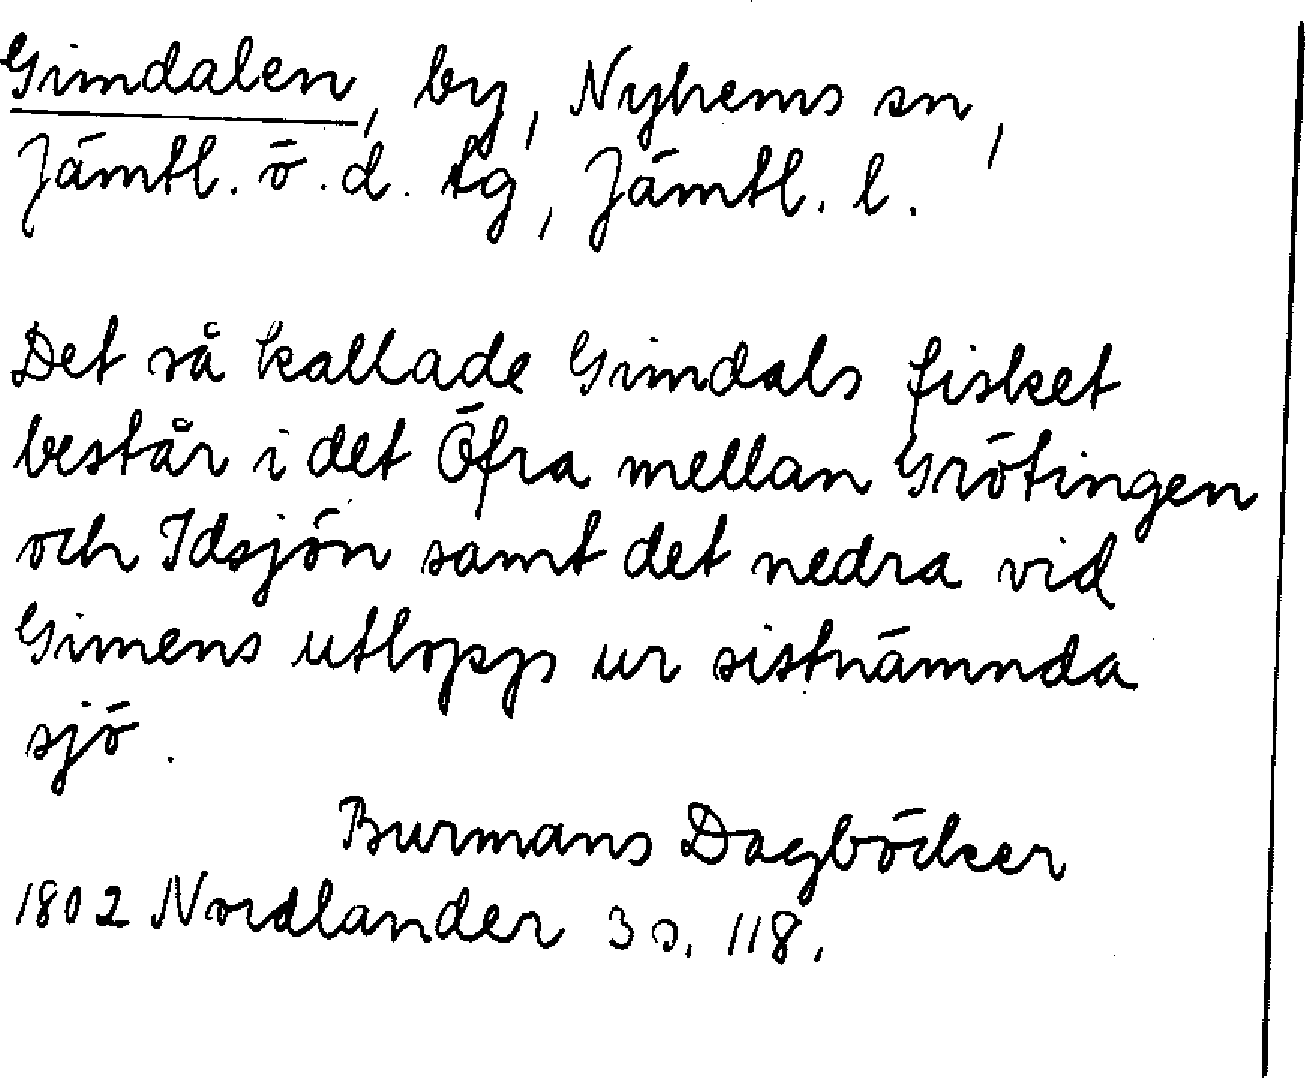 Gimdalen, by, Nyhems sn,
Jämtl. ö. d. tg, Jämtl. l.
Det så kallade Gimdals fisket
består i det Öfra mellan Grötingen
och Idsjön samt det nedra vid
Gimens utlopps ur sistnämnda
sjö.
Burmans Dagböcker
1802 Nordlander 3 s. 118.